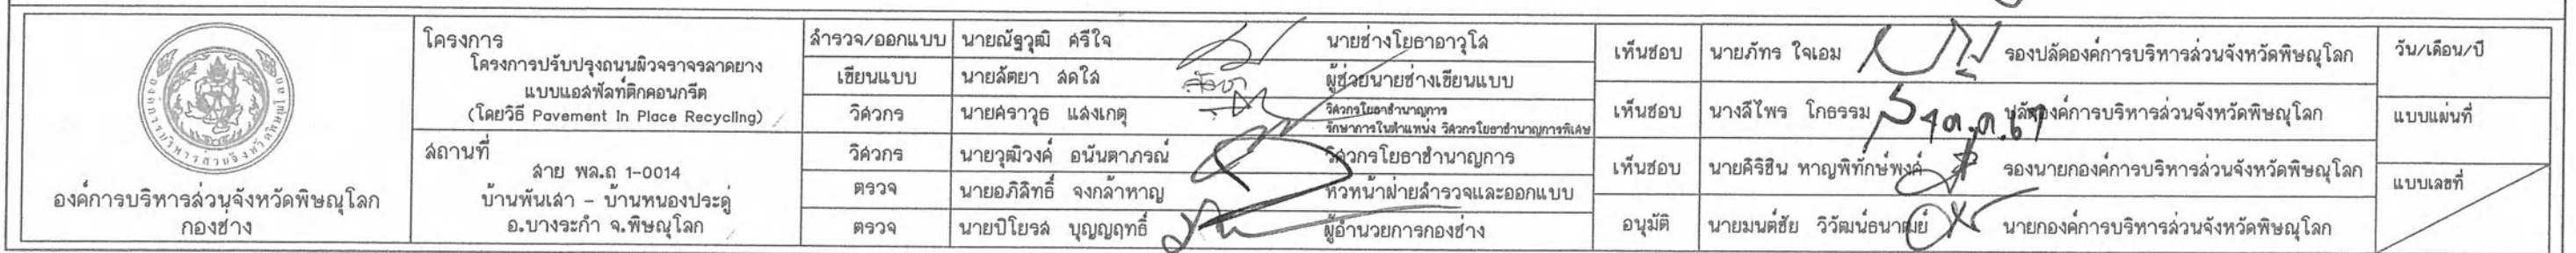 องค์การบริหารส่วนจังหวัดพิษณุโลก
องค์การบริหารส่วนจังหวัดพิษณุโลก
กองช่าง
โครงการ
โครงการปรับปรุงถนนผิวจราจรลาดยาง
แบบแอสฟัลท์ติกคอนกรีต
(โดยวิธี Pavement In Place Recycling)
สถานที่
สาย พล.ถ 1-0014
บ้านพันเสา - บ้านหนองประดู่
อ.บางระกำ จ.พิษณุโลก
สำรวจ/ออกแบบ นายณัฐวุฒิ ศรีใจ นายช่างโยธาอาวุโส
เขียนแบบ นายลัตยา สดใส ผู้ช่วยนายช่างเขียนแบบ
วิศวกร นายศราวุธ แสงเกตุ วิศวกรโยธาชำนาญการ
รักษาการในตำแหน่ง วิศวกรโยธาชำนาญการพิเศษ
วิศวกร นายวุฒิวงศ์ อนันตาภรณ์ วิศวกรโยธาชำนาญการ
ตรวจ นายอภิสิทธิ์ จงกล้าหาญ หัวหน้าฝ่ายสำรวจและออกแบบ
ตรวจ นายปิโยรส บุญญฤทธิ์ ผู้อำนวยการกองช่าง
เห็นชอบ นายภัทร ใจเอม รองปลัดองค์การบริหารส่วนจังหวัดพิษณุโลก
เห็นชอบ นางสีไพร โกธรรม ปลัดองค์การบริหารส่วนจังหวัดพิษณุโลก
เห็นชอบ นายคิริชิน หาญพิทักษ์พงศ์ รองนายกองค์การบริหารส่วนจังหวัดพิษณุโลก
อนุมัติ นายมนต์ชัย วิวัฒน์ธนาฒย์ นายกองค์การบริหารส่วนจังหวัดพิษณุโลก
วัน/เดือน/ปี
แบบแผ่นที่
แบบเลขที่